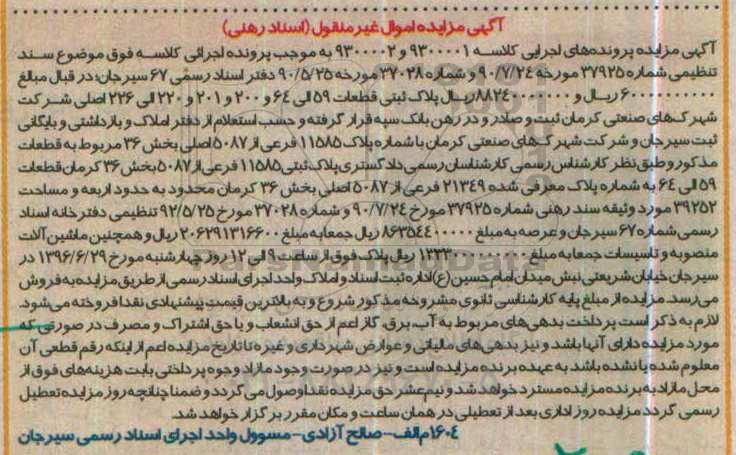 آگهی مزایده اموال غیر منقول (اسناد رهنی)
آگهی مزایده پرونده‌های اجرایی کلاسه ۹۳۰۰۰۰۱ و ۹۳۰۰۰۰۲ به موجب پرونده اجرائی کلاسه فوق موضوع سند
تنظیمی شماره ۳۷۹۲۵ مورخه ۹۰/۷/۲۴ و شماره ۳۷۰۲۸ مورخه ۹۰/۵/۲۵ دفتر اسناد رسمی ۶۷ سیرجان؛ در قبال مبلغ
ریال و ریال پلاک ثبتی قطعات ۵۹ الی ۶۴ و ۲۰۰ و ۲۰۱ و ۲۲۰ الی ۲۲۶ اصلی شرکت
شهرک‌های صنعتی کرمان ثبت و صادر و در رهن بانک سپه قرار گرفته و حسب استعلام از دفتر املاک و بازداشتی و بایگانی
ثبت سیرجان و شرکت شهرک‌های صنعتی کرمان با شماره پلاک ۱۱۵۸۵ فرعی از ۵۰۸۷ اصلی بخش ۳۶ مربوط به قطعات
مذکور و طبق نظر کارشناس رسمی کارشناسان رسمی دادگستری پلاک ثبتی ۱۱۵۸۵ فرعی از ۵۰۸۷ بخش ۳۶ کرمان قطعات
۵۹ الی ۶۴ به شماره پلاک معرفی شده ۲۱۳۴۹ فرعی از ۵۰۸۷ اصلی بخش ۳۶ کرمان محدود به حدود اربعه و مساحت
۳۹۲۵۲ مورد وثیقه سند رهنی شماره ۳۷۹۲۵ مورخ ۹۰/۷/۲۴ و شماره ۳۷۰۲۸ مورخ ۹۲/۵/۲۵ تنظیمی دفترخانه اسناد
رسمی شماره ۶۷ سیرجان و عرصه به مبلغ ۸۶۳۵۴۴۰۰۰۰۰ ریال جمعا به مبلغ ۲۰۶۲۹۱۳۱۶۶۰۰ ریال و همچنین ماشین آلات
منصوبه و تاسیسات جمعا به مبلغ ریال پلاک فوق از ساعت ۹ الی ۱۲ روز چهارشنبه مورخ ۱۳۹۶/۶/۲۹ در
سیرجان خیابان شریعتی نبش میدان امام حسین (ع) اداره ثبت اسناد و املاک واحد اجرای اسناد رسمی از طریق مزایده به فروش
می‌رسد. مزایده از مبلغ پایه کارشناسی ثانوی مشروحه مذکور شروع و به بالاترین قیمت پیشنهادی نقدا فروخته می‌شود.
لازم به ذکر است پرداخت بدهی‌های مربوط به آب، برق، گاز اعم از حق انشعاب و یا حق اشتراک و مصرف در صورتی که
مورد مزایده دارای آنها باشد و نیز بدهی‌های مالیاتی و عوارض شهرداری و غیره تا تاریخ مزایده اعم از اینکه رقم قطعی آن
معلوم شده یا نشده باشد به عهده برنده مزایده است و نیز در صورت وجود مازاد وجوه پرداختی بابت هزینه‌های فوق از
محل مازاد به برنده مزایده مسترد خواهد شد و نیم عشر حق مزایده نقدا وصول می‌گردد و ضمنا چنانچه روز مزایده تعطیل
رسمی گردد مزایده روز اداری بعد از تعطیلی در همان ساعت و مکان مقرر برگزار خواهد شد.
۱۶۰۴ م‌الف - صالح آزادی - مسوول واحد اجرای اسناد رسمی سیرجان